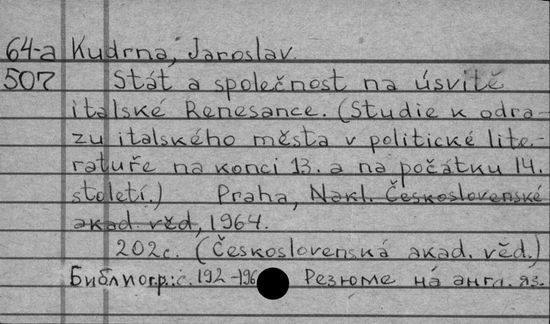 64-a Kudrna, Jaroslav.
507 Stát a společnost na úsvitě
italské Renesance. (Studie k odra-
zu italského města v politické lite-
ratuře na konci 13. a na počátku 14.
století.) Praha, Nakl. Československé
akad. věd, 1964.
202c. (Československá akad. věd.)
Библиогр.: с. 192-196 Резюме на англ. яз.